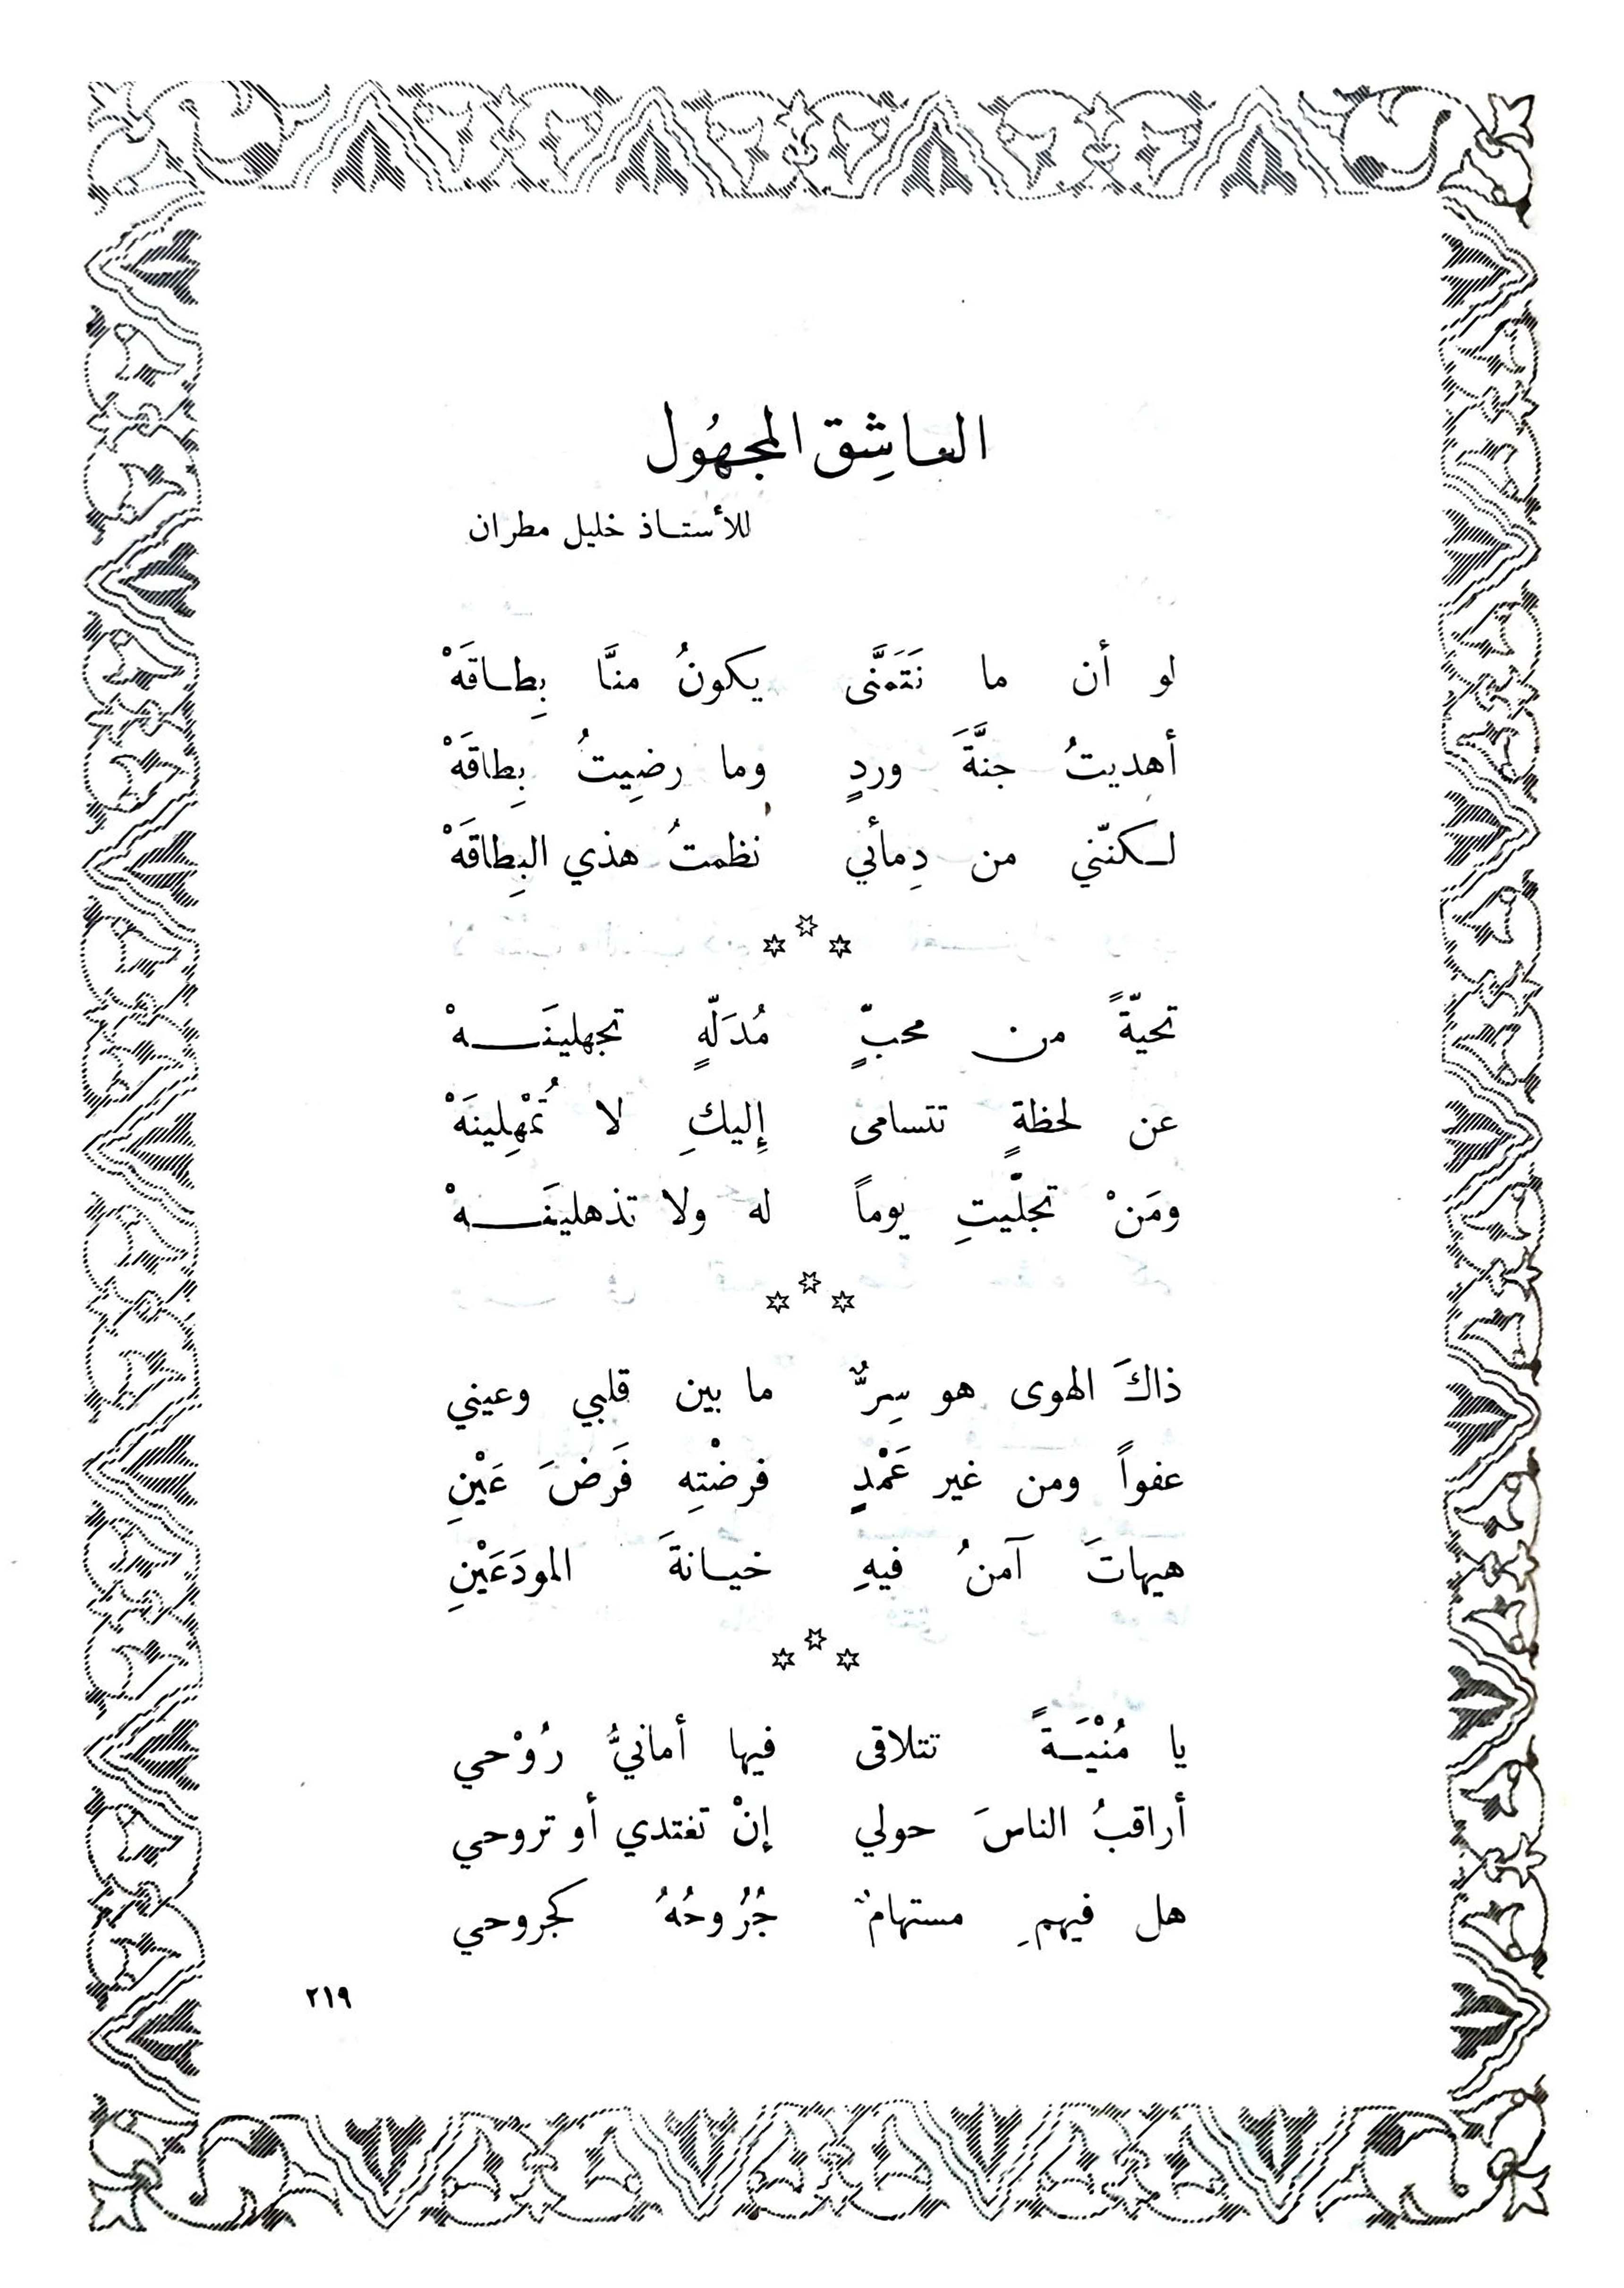 العاشِق المجهُول
للأستاذ خليل مطران
لو أن ما نَتَمَنَّى يكونُ منَّا بِطاقَهْ
أهديتُ جنَّةَ وردٍ وما رضِيتُ بِطاقَهْ
لكنّني من دِمائي نظمتُ هذي البِطاقَهْ
تحيّةً من محبٍّ مُدَلّهٍ تجهلينَهْ
عن لحظةٍ تتسامى إِليكِ لا تُمْهِلينَهْ
ومَنْ تجلّيتِ يوماً له ولا تذهلينَهْ
ذاكَ الهوى هو سِرٌّ ما بين قلبي وعيني
عفواً ومن غير عَمْدٍ فرضْتِه فَرَضَ عَيْنِ
هيهاتَ آمنُ فيهِ خيانةَ المودَعَيْنِ
يا مُنْيَةً تتلاقى فيها أمانيُّ رُوْحي
أراقبُ الناسَ حولي إنْ تغتدي أو تروحي
هل فيهمِ مستهامٌ جُرُوحُهُ كجروحي
٢١٩